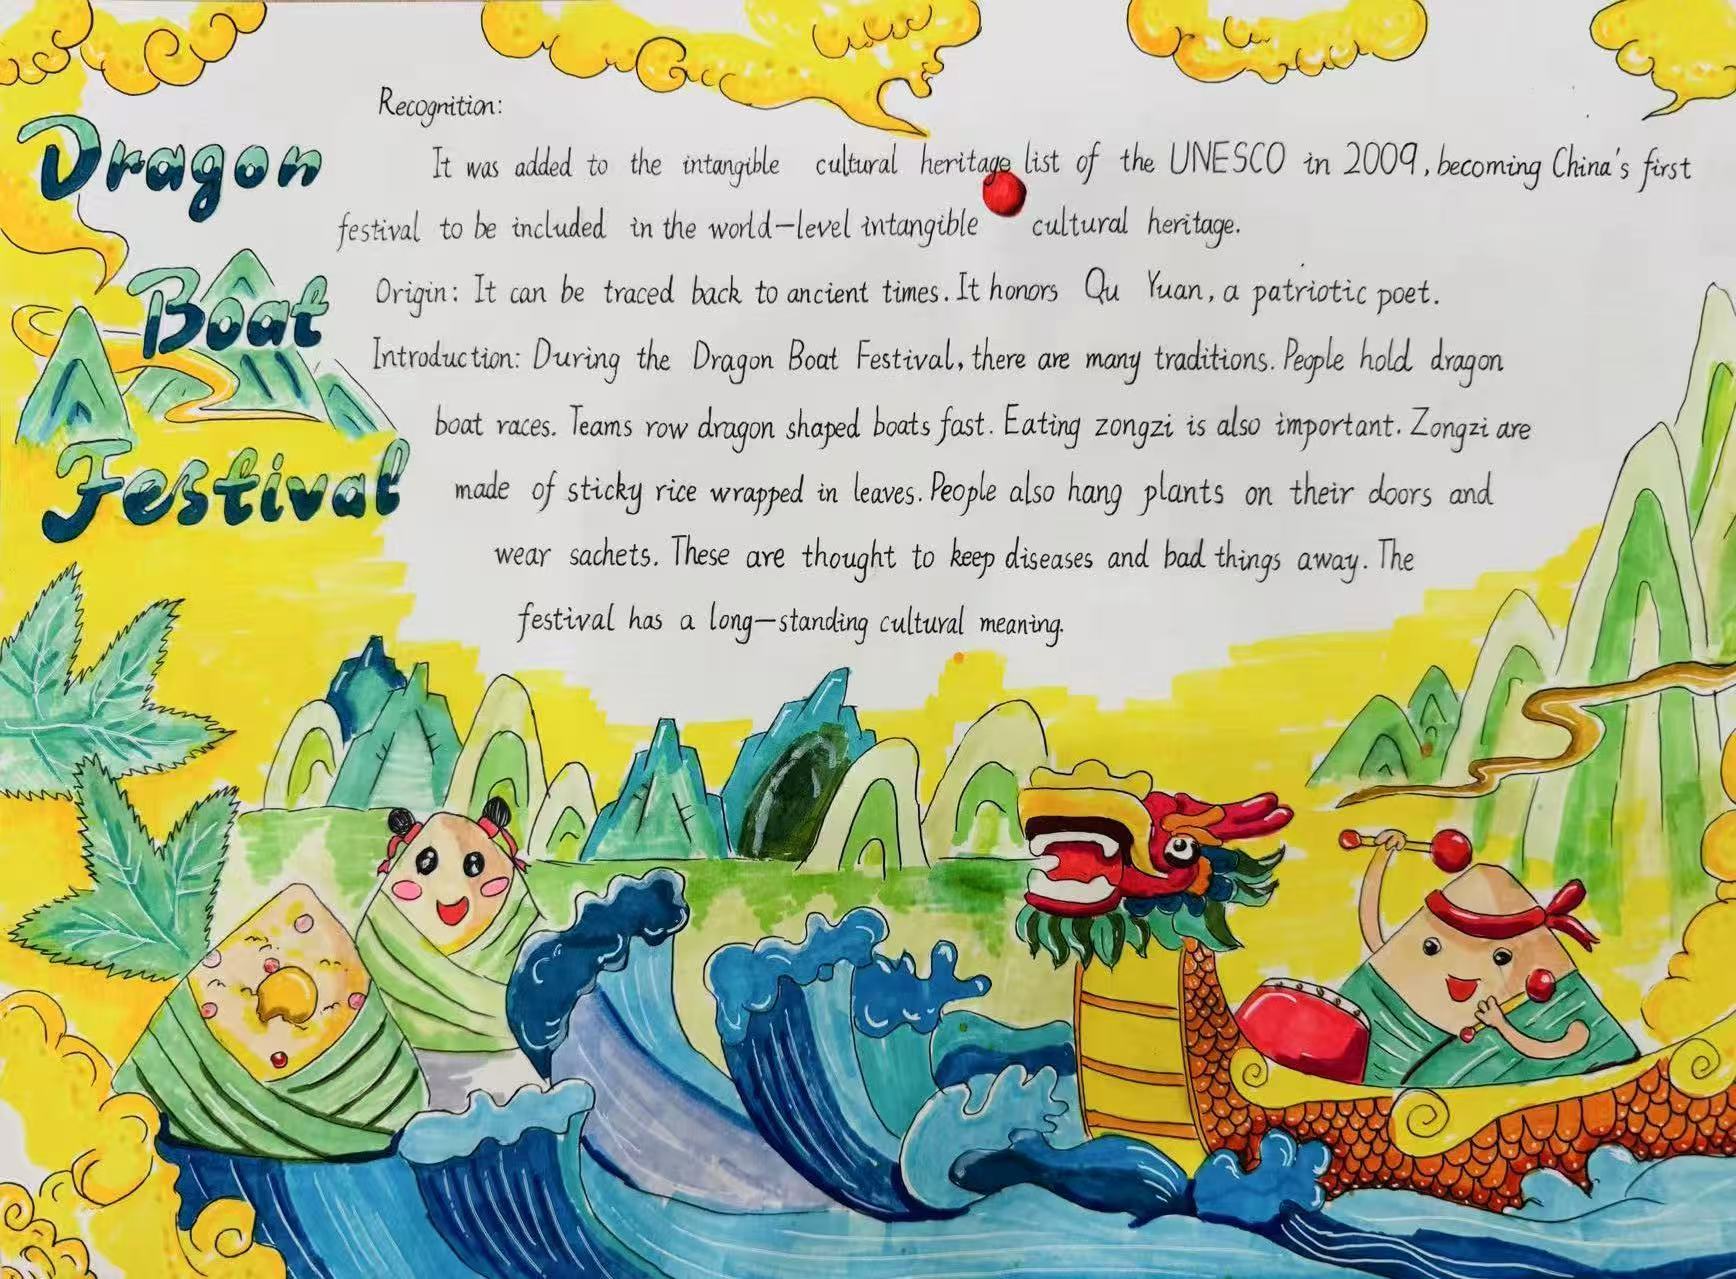 Dragon
Boat
Festival
Recognition:
It was added to the intangible cultural heritage list of the UNESCO in 2009, becoming China's first
festival to be included in the world-level intangible cultural heritage.
Origin: It can be traced back to ancient times. It honors Qu Yuan, a patriotic poet.
Introduction: During the Dragon Boat Festival, there are many traditions. People hold dragon
boat races. Teams row dragon shaped boats fast. Eating zongzi is also important. Zongzi are
made of sticky rice wrapped in leaves. People also hang plants on their doors and
wear sachets. These are thought to keep diseases and bad things away. The
festival has a long-standing cultural meaning.